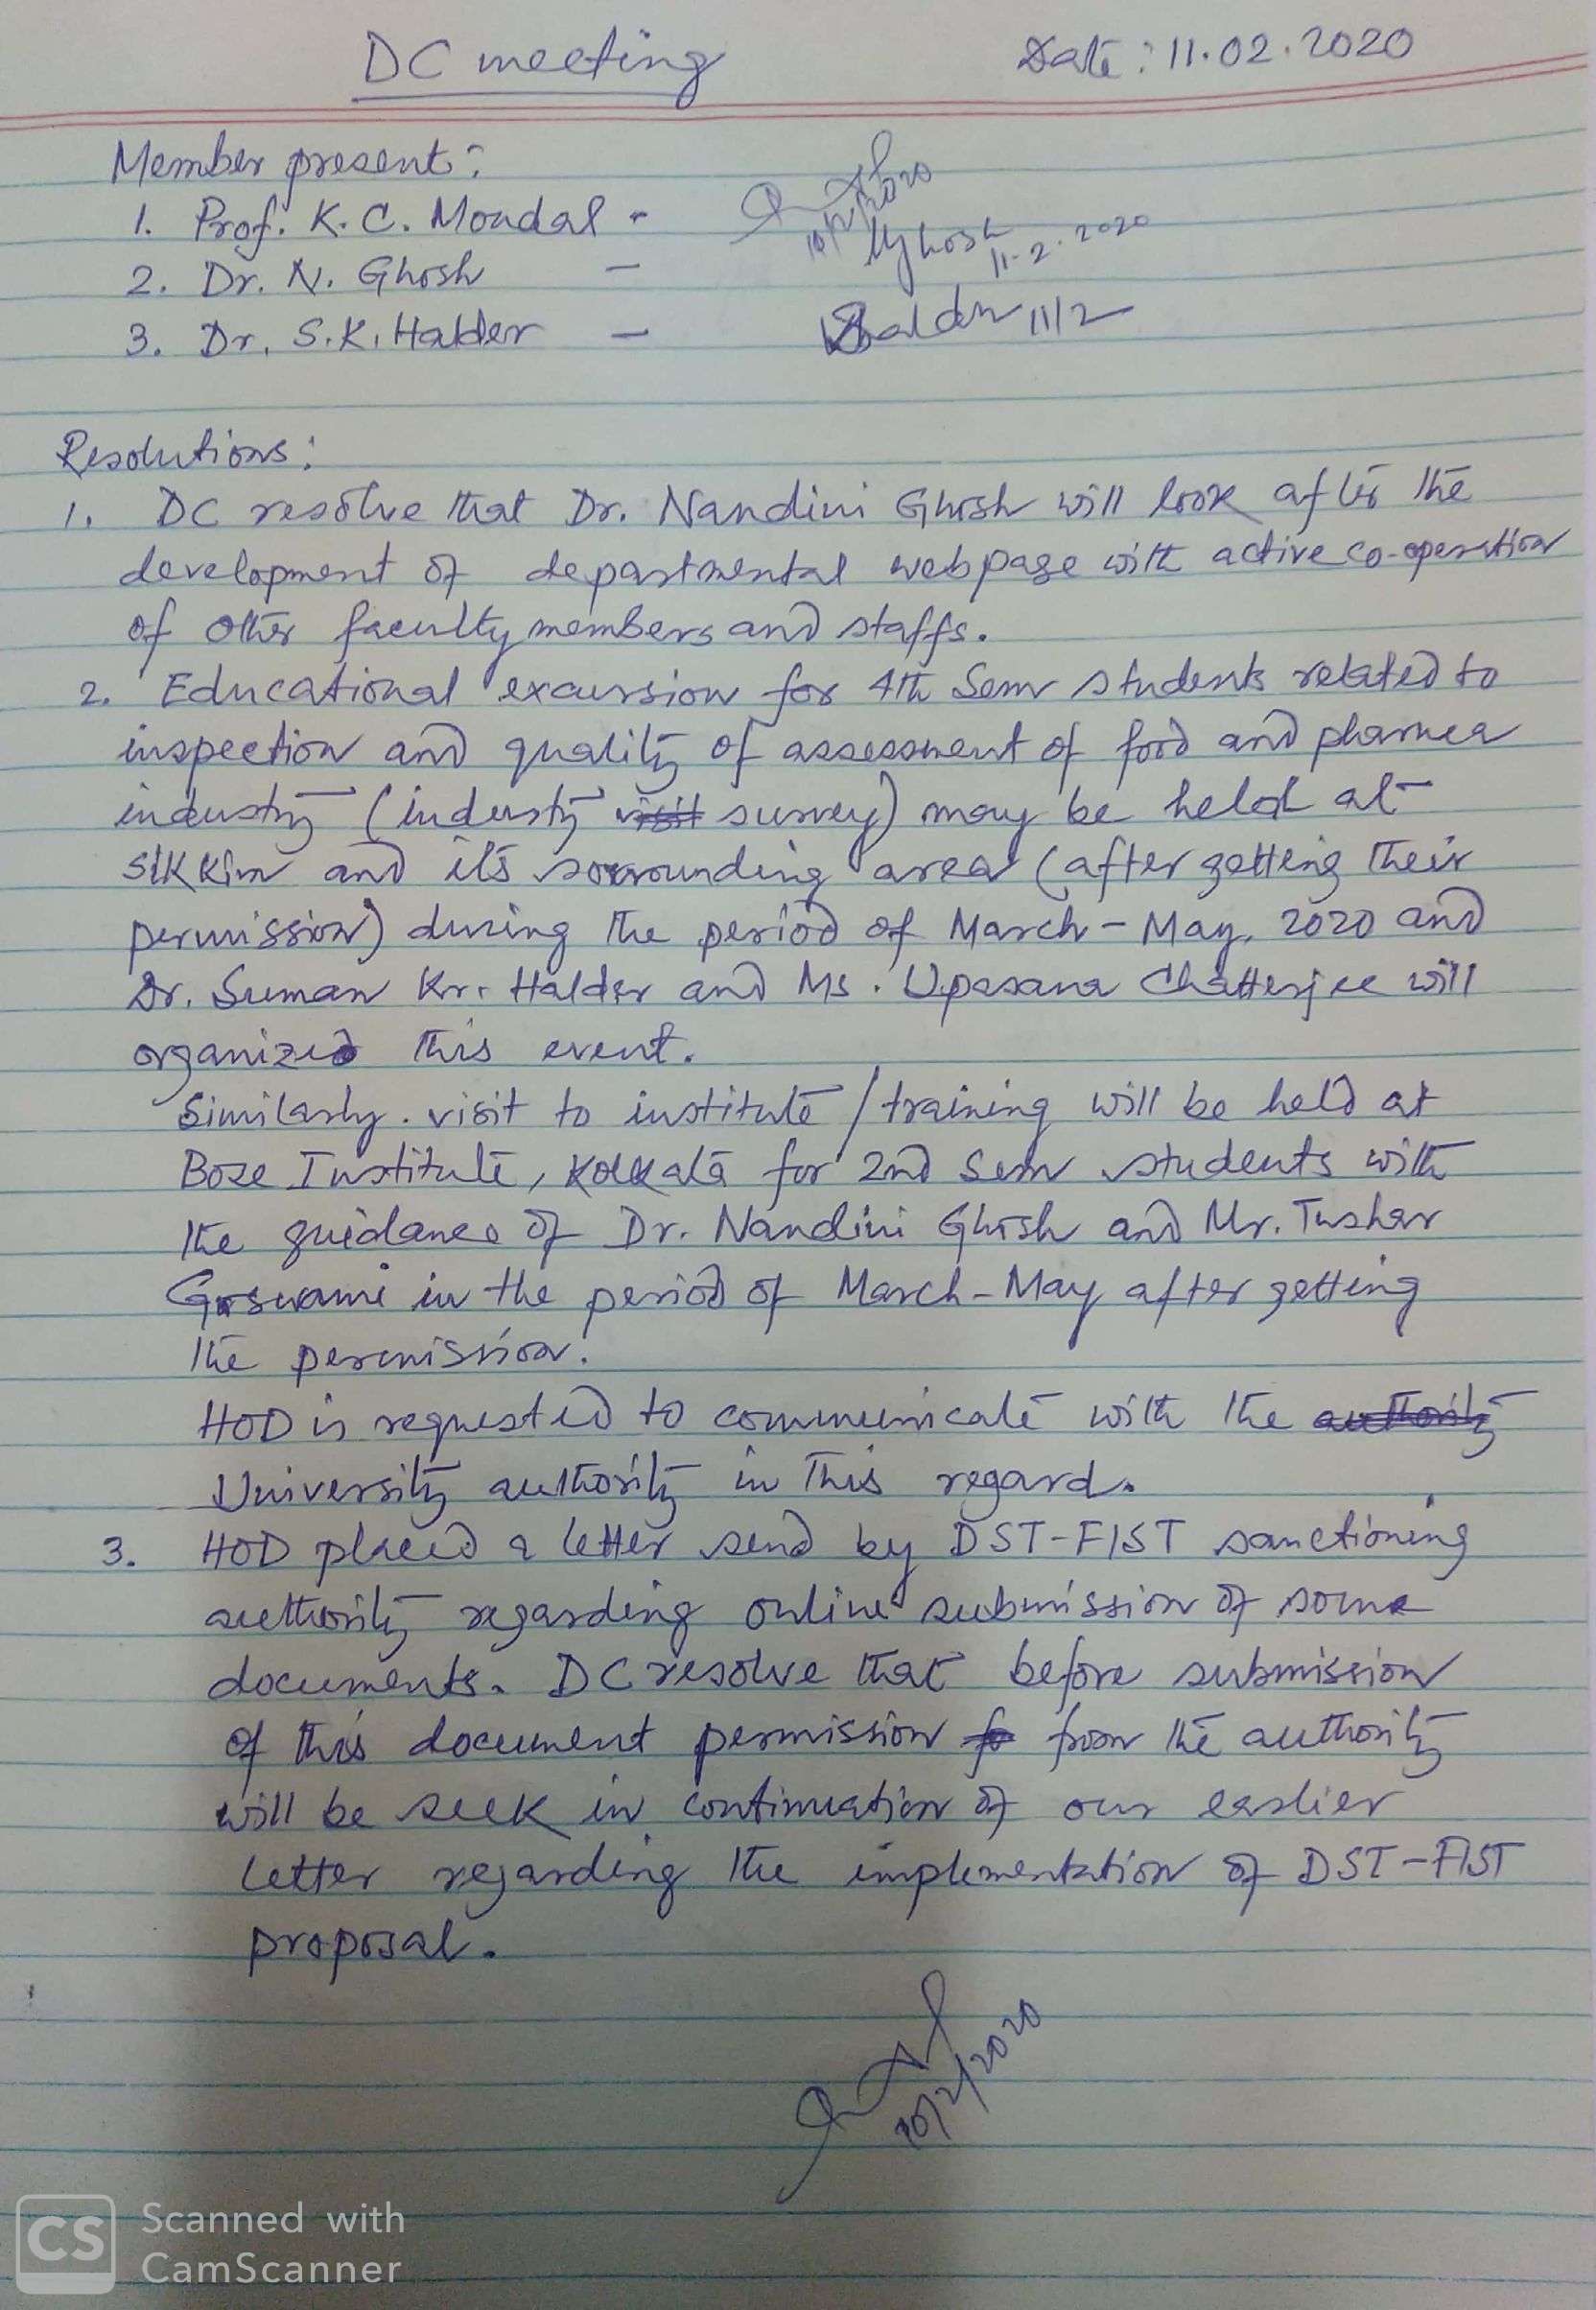 DC meeting Date: 11.02.2020
Member present:
1. Prof. K. C. Mondal -
10/2/2020
2. Dr. N. Ghosh -
NGhosh
11-2-2020
3. Dr. S.K. Halder -
SHalder 11/2
Resolutions:
1. DC resolve that Dr. Nandini Ghosh will look after the
development of departmental webpage with active co-operation
of other faculty members and staffs.
2. Educational excursion for 4th Sem students related to
inspection and quality of assessment of food and pharma
industry (industry visit survey) may be held at
Sikkim and its sorrounding area (after getting their
permission) during the period of March - May, 2020 and
Dr. Suman Kr. Halder and Ms. Upasana Chatterjee will
organized this event.
Similarly. visit to institute / training will be held at
Bose Institute, Kolkata for 2nd Sem students with
the guidance of Dr. Nandini Ghosh and Mr. Tushar
Goswami in the period of March-May after getting
the permission.
HOD is requested to communicate with the authority
University authority in this regard.
3. HOD placed a letter send by DST-FIST sanctioning
authority regarding online submission of some
documents. DC resolve that before submission
of this document permission fo from the authority
will be seek in continuation of our earlier
letter regarding the implementation of DST-FIST
proposal.
10/2/2020
CS Scanned with
CamScanner